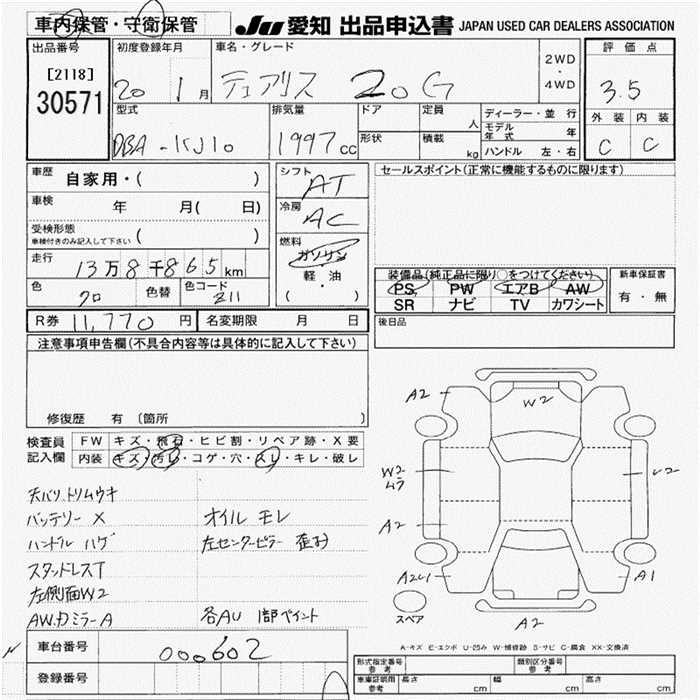 車内保管・守衛保管
JU 愛知 出品申込書 JAPAN USED CAR DEALERS ASSOCIATION
出品番号
[2118]
30571
初度登録年月
20 1月
車名・グレード
デュアリス 20G
2WD
・
4WD
評価点
3.5
型式
DBA-KJ10
排気量
1997cc
ドア
形状
定員
人
積載
kg
ディーラー・並行
モデル年式 年
ハンドル 左・右
外装 内装
C C
車歴
自家用・( )
車検 年 月( 日)
受検形態
車検付きのみ記入して下さい ( )
走行
13万8千865km
色
クロ
色替
色コード
Z11
シフト
AT
冷房
AC
燃料
ガソリン
軽・油
( ・ )
セールスポイント(正常に機能するものに限ります)
装備品(純正品に限り○をつけてください)
PS PW エアB AW
SR ナビ TV カワシート
新車保証書
有・無
R券 11,770円 名変期限 月 日
後日品
注意事項申告欄(不具合内容等は具体的に記入して下さい)
修復歴 有 〔箇所 〕
検査員
記入欄
FW キズ・飛石・ヒビ割・リペア跡・X要
内装 キズ・汚レ・コゲ・穴・スレ・キレ・破レ
天バリ トリムウキ
バッテリー X
オイル モレ
ハンドル ハゲ
左センターピラー 歪み
スタッドレスT
左側面W2
AW.カミラーA
各AU 1部ペイント
A2
W2
W2
ムラ
A2
A1
A2
スペア
A-キズ E-エクボ U-凹み W-補修跡 S-サビ C-腐食 XX-交換済
車台番号
000602
登録番号
形式指定番号
参考
類別区分番号
参考
車庫証明用
参考
長さ cm
幅 cm
高さ cm